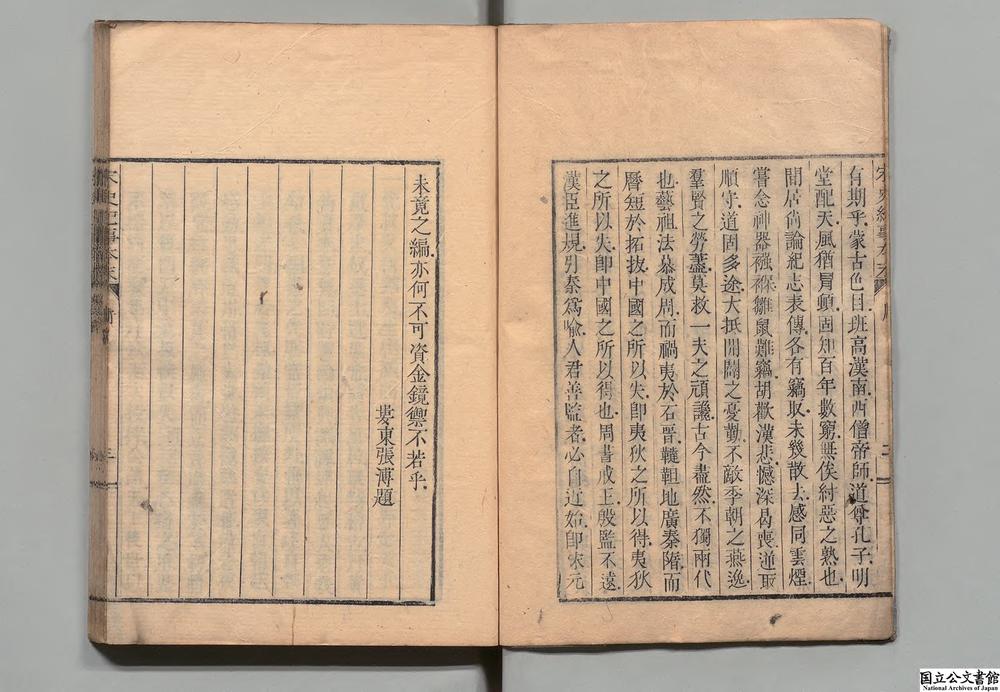 有期乎蒙古色目班高漢南西僧帝師道尊孔子明
堂配天風猶冐頓固知百年數窮無俟紂惡之熟也
閒居尚論紀志表傳各有竊取未幾散去感同雲煙
嘗念神器襁褓雛鼠難竊胡歡漢悲憾深曷喪逆取
順守道固多途大抵開闢之憂勤不敵季朝之燕逸
羣賢之勞藎莫救一夫之頑讒古今盡然不獨兩代
也藝祖法慕成周而禍夷於石晉韃靼地廣秦隋而
曆短於拓拔中國之所以失卽夷狄之所以得夷狄
之所以失卽中國之所以得也周書戒王殷監不遠
漢臣進規引秦爲喻人君善監者必自近始卽宋元
未竟之編亦何不可資金鏡禦不若乎
婁東張溥題
宋史紀事本末
序
三
国立公文書館
National Archives of Japan